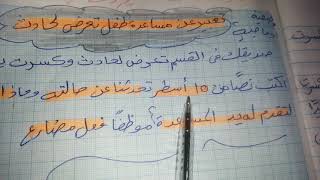 تعبير عن مساعدة طفل تعرض لحادث
صديقك في القسم تعرض لحادث وكسرت
اكتب نصا من 10 أسطر تحدثنا عن حالته وماذا
لتقدم له يد المساعدة موظفا فعل مضارع